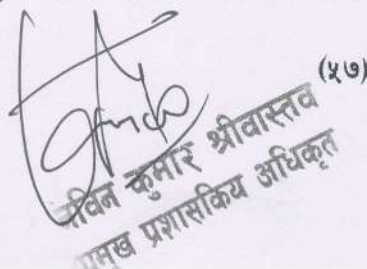 (५७)
कुमार श्रीवास्तव
प्रमुख प्रशासकिय अधिकृत